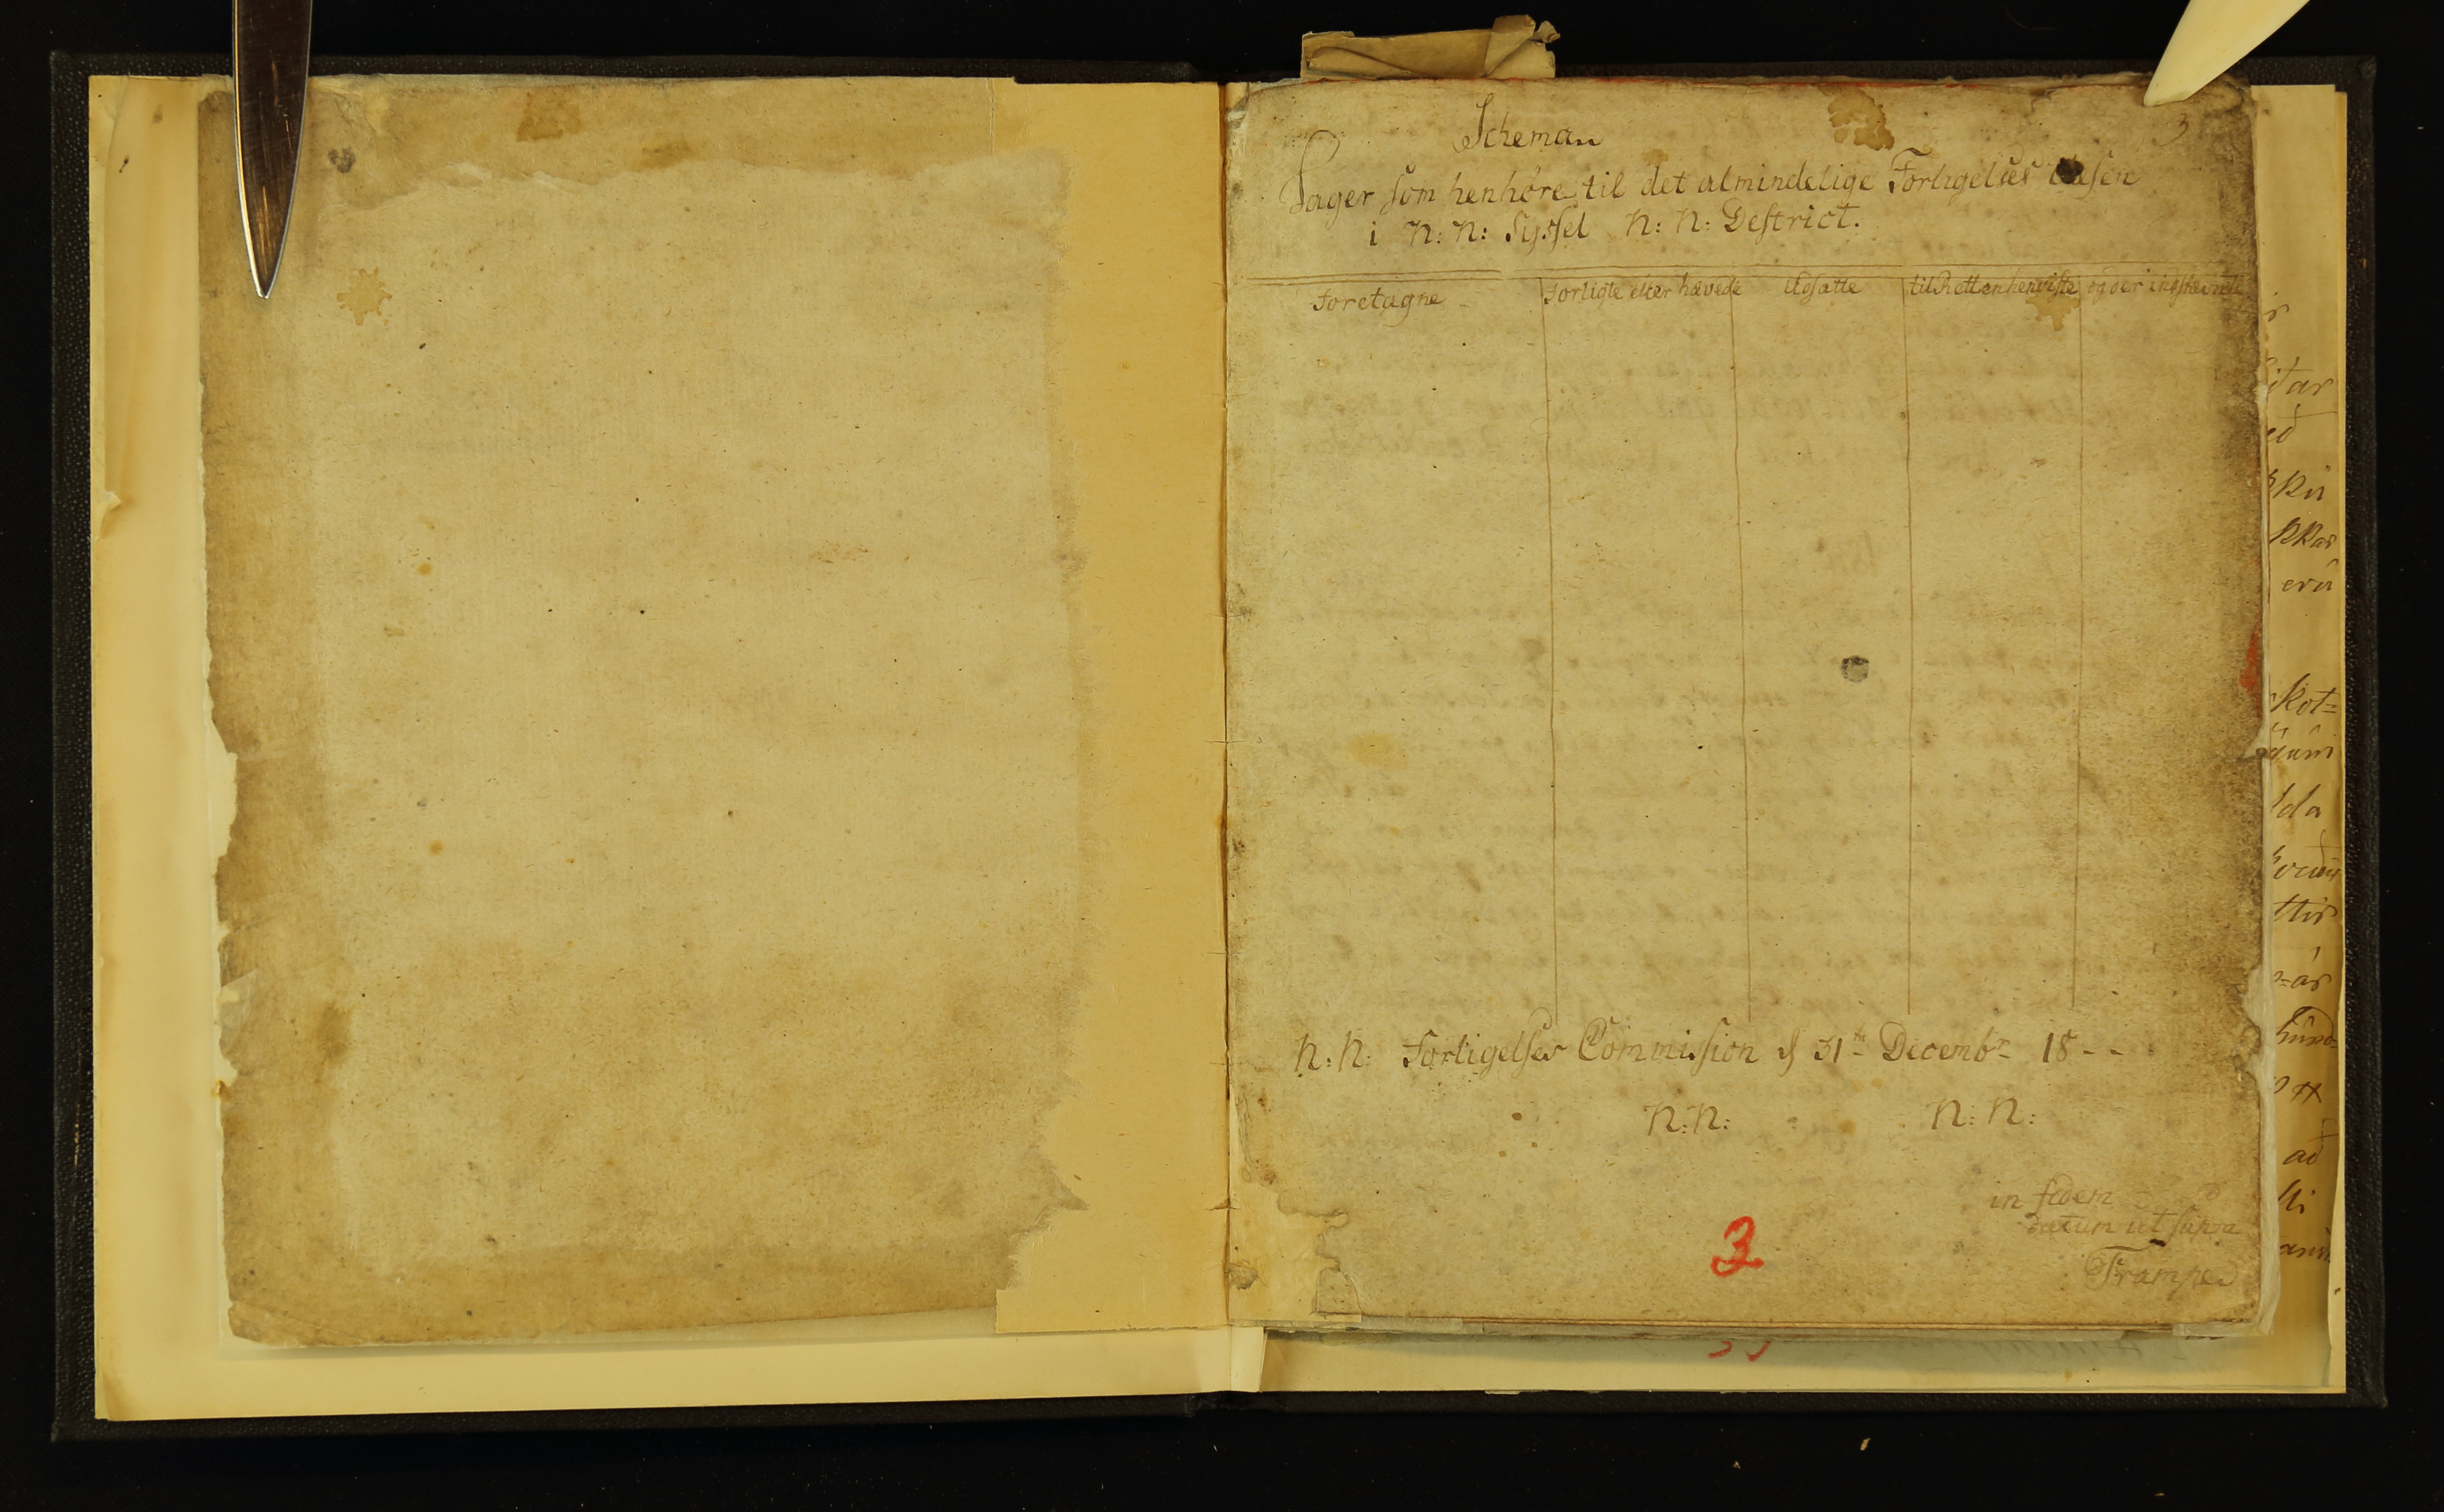 3
Scheman
Sager som henhøre til det almindelige Forligelses Væsen
i N: N: Syssel N: N: Destrict.
Foretagne
Forligte eller hævede
Udsatte
til Retten henviste
og der indstævnte
N: N: Forligelses Commission d 31te Decembr 18 - -
N: N: N: N:
in fidem
datum ut supra
Trampe
3
itar
kot=
dum
lda
ttir
að